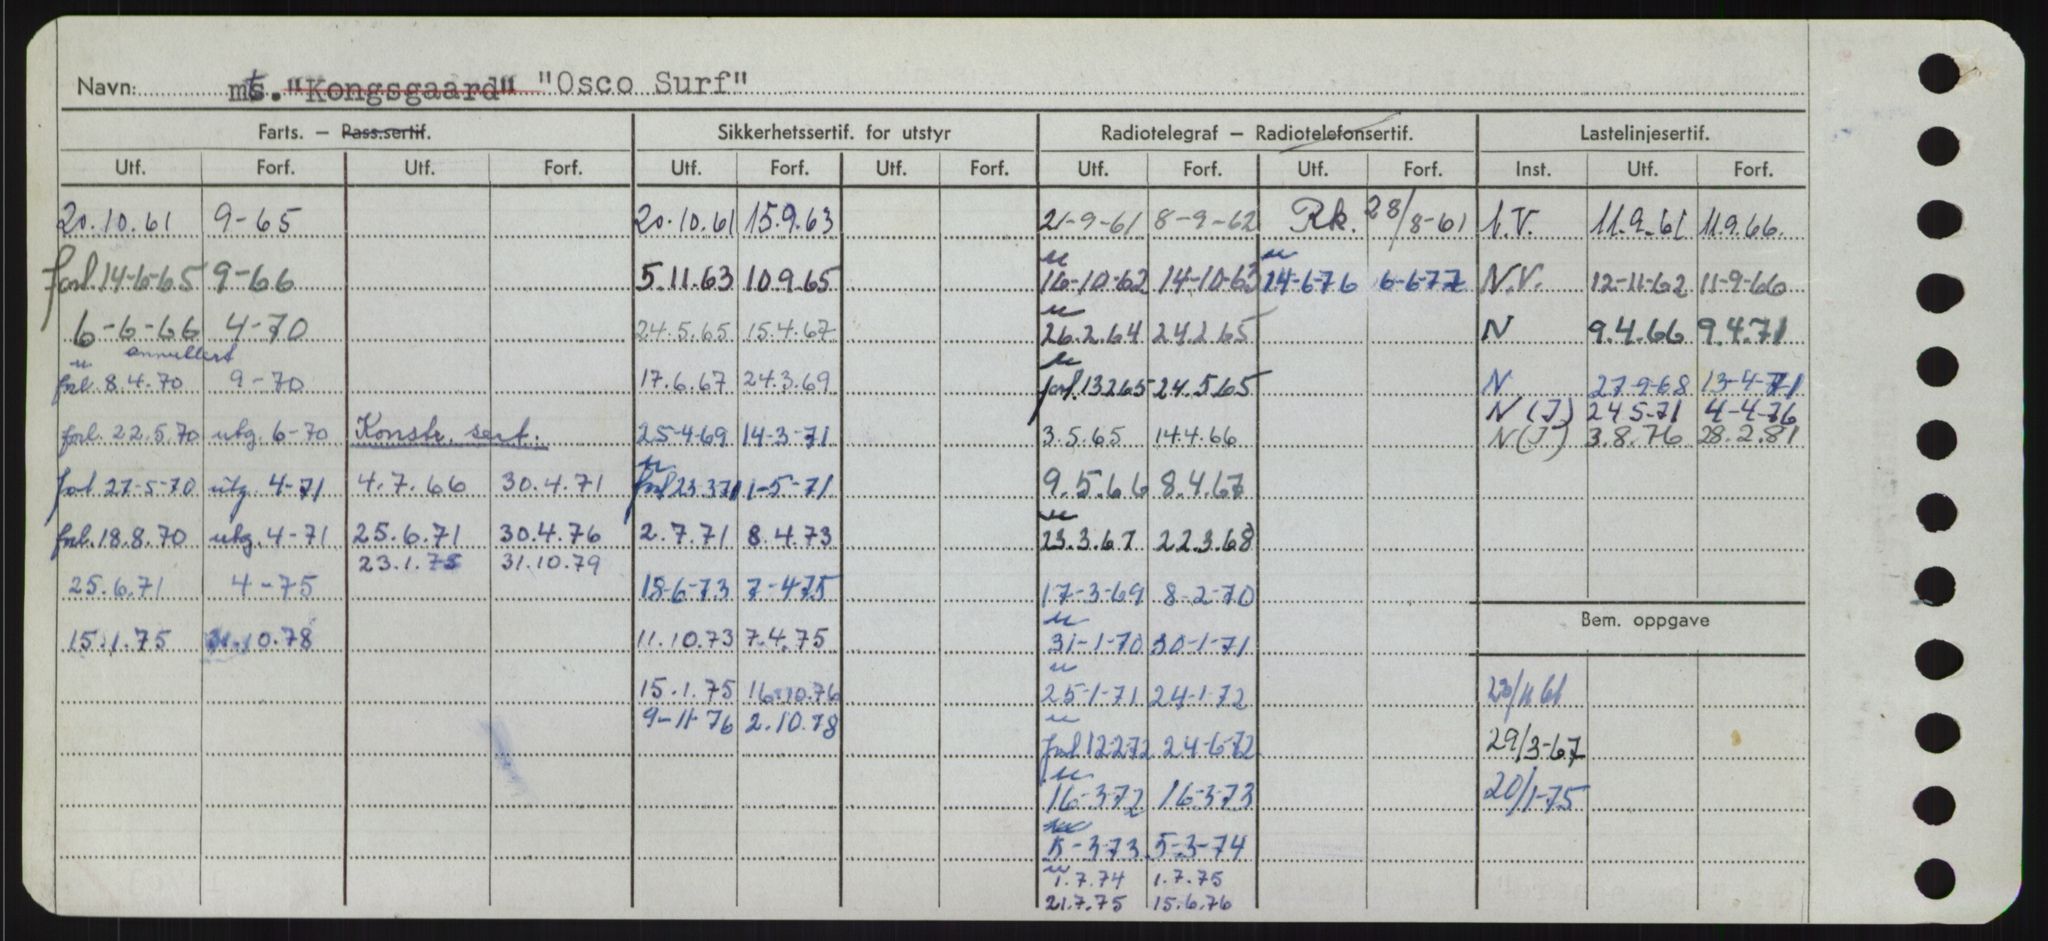 Navn: mts. "Kongsgaard" "Osco Surf"
Farts. — Pass.sertif. Sikkerhetssertif. for utstyr Radiotelegraf — Radiotelefonsertif. Lastelinjesertif.
Utf. Forf. Utf. Forf. Utf. Forf. Utf. Forf. Utf. Forf. Utf. Forf. Inst. Utf. Forf.
20.10.61 9-65 20.10.61 15.9.63 21-9-61 8-9-62 Rk. 28/8-61 I.V. 11.9.61 11.9.66.
forl. 14-6-65 9-66 5.11.63 10.9.65 16-10-62 14-10-63 14-6-76 6-6-77 N.V. 12-11-62 11-9-66
6-6-66 4-70 24.5.65 15.4.67 26.2.64 24.2.65 N 9.4.66 9.4.71
annullert
forl. 8.4.70 9-70 17.6.67 24.3.69 forl. 13.2.65 24.5.65 N 27-9-68 13-4-71
N (J) 24.5-71 4-4-76
forl. 22.5.70 utg. 6-70 Konstr. sert. 25-4-69 14-3-71 3.5.65 14.4.66 N (J) 3.8.76 28.2.81
forl. 27-5-70 utg. 4-71 4.7.66 30.4.71 forl. 23-3-71 1-5-71 9.5.66 8.4.67
forl. 18.8.70 utg. 4-71 25.6.71 30.4.76 2.7.71 8.4.73 23.3.67 22.3.68
23.1.75 31.10.79
25.6.71 4-75 18-6-73 7-4-75 17-3-69 8-2-70
Bem. oppgave
15.1.75 31.10.78 11.10.73 7.4.75 31-1-70 30-1-71
15.1.75 16.10.76 25-1-71 24-1-72 23/11 61
9-11-76 2.10.78
forl. 12.2.72 24-6-72 29/3-67
16-3-72 16-3-73 20/1-75
5-3-73 5-3-74
1.7.74 1.7.75
21.7.75 15.6.76